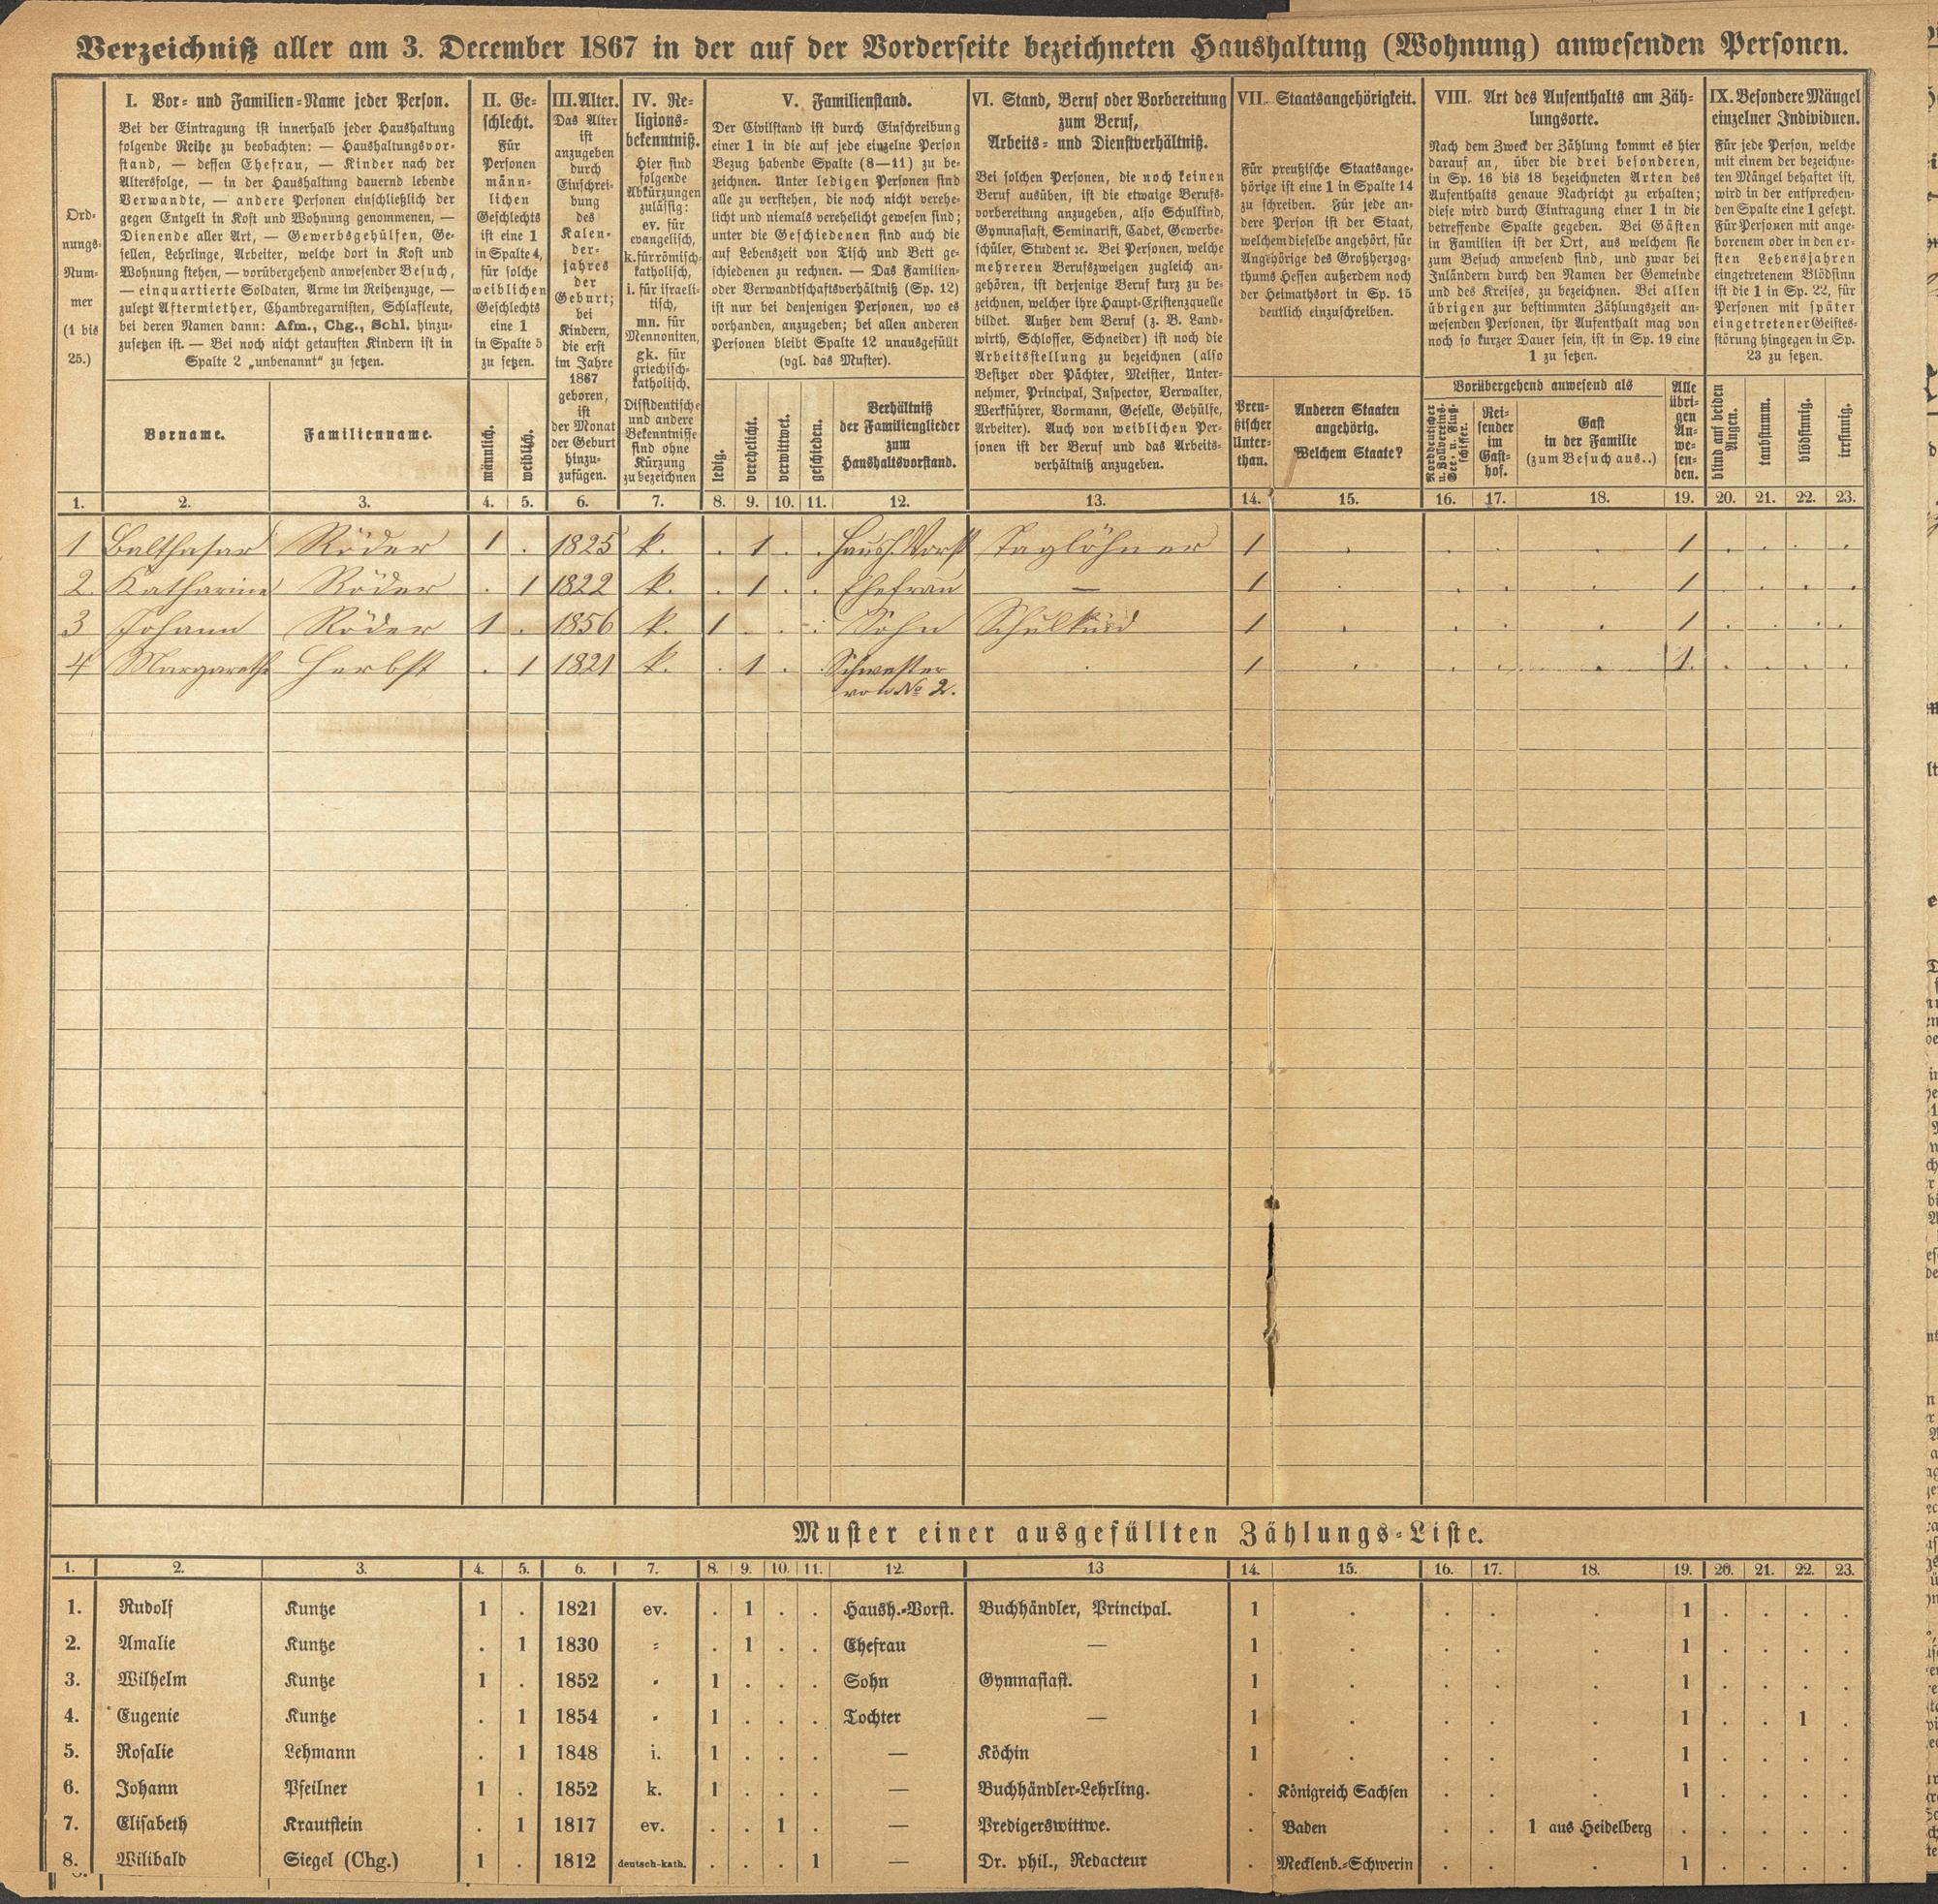 Verzeichniß aller am 3. December 1867 in der auf der Vorderseite bezeichneten Haushaltung (Wohnung) anwesenden Personen.
Ord-
nungs-
Num-
mer
(1 bis
25.)
I. Vor- und Familien-Name jeder Person.
Bei der Eintragung ist innerhalb jeder Haushaltung
folgende Reihe zu beobachten: — Haushaltungsvor-
stand, — dessen Ehefrau, — Kinder nach der
Altersfolge, — in der Haushaltung dauernd lebende
Verwandte, — andere Personen einschließlich der
gegen Entgelt in Kost und Wohnung genommenen, —
Dienende aller Art, — Gewerbsgehülfen, Ge-
sellen, Lehrlinge, Arbeiter, welche dort in Kost und
Wohnung stehen, — vorübergehend anwesender Besuch,
— einquartierte Soldaten, Arme im Reihenzuge, —
zuletzt Aftermiether, Chambregarnisten, Schlafleute,
bei deren Namen dann: Afm., Chg., Schl. hinzu-
zusetzen ist. — Bei noch nicht getauften Kindern ist in
Spalte 2 „unbenannt“ zu setzen.
Vorname.
Familienname.
II. Ge-
schlecht.
Für
Personen
männ-
lichen
Geschlechts
ist eine 1
in Spalte 4,
für solche
weiblichen
Geschlechts
eine 1
in Spalte 5
zu setzen.
männlich.
weiblich.
III. Alter.
Das Alter
ist
anzugeben
durch
Einschrei-
bung
des
Kalen-
der-
jahres
der
Geburt;
bei
Kindern,
die erst
im Jahre
1867
geboren,
ist
der Monat
der Geburt
hinzu-
zufügen.
IV. Re-
ligions-
bekenntniß.
Hier sind
folgende
Abkürzungen
zulässig:
ev. für
evangelisch,
k. für römisch-
katholisch,
i. für israeli-
tisch,
mn. für
Mennoniten,
gk. für
griechisch-
katholisch.
Dissidentische
und andere
Bekenntnisse
sind ohne
Kürzung
zu bezeichnen
V. Familienstand.
Der Civilstand ist durch Einschreibung
einer 1 in die auf jede einzelne Person
Bezug habende Spalte (8—11) zu be-
zeichnen. Unter ledigen Personen sind
alle zu verstehen, die noch nicht verehe-
licht und niemals verehelicht gewesen sind;
unter die Geschiedenen sind auch die
auf Lebenszeit von Tisch und Bett ge-
schiedenen zu rechnen. — Das Familien-
oder Verwandtschaftsverhältniß (Sp. 12)
ist nur bei denjenigen Personen, wo es
vorhanden, anzugeben; bei allen anderen
Personen bleibt Spalte 12 unausgefüllt
(vgl. das Muster).
ledig.
verehelicht.
verwittwet.
geschieden.
Verhältniß
der Familienglieder
zum
Haushaltsvorstand.
VI. Stand, Beruf oder Vorbereitung
zum Beruf,
Arbeits- und Dienstverhältniß.
Bei solchen Personen, die noch keinen
Beruf ausüben, ist die etwaige Berufs-
vorbereitung anzugeben, also Schulkind,
Gymnasiast, Seminarist, Cadet, Gewerbe-
schüler, Student ꝛc. Bei Personen, welche
mehreren Berufszweigen zugleich an-
gehören, ist derjenige Beruf kurz zu be-
zeichnen, welcher ihre Haupt-Existenzquelle
bildet. Außer dem Beruf (z. B. Land-
wirth, Schlosser, Schneider) ist noch die
Arbeitsstellung zu bezeichnen (also
Besitzer oder Pächter, Meister, Unter-
nehmer, Principal, Inspector, Verwalter,
Werkführer, Vormann, Geselle, Gehülfe,
Arbeiter). Auch von weiblichen Per-
sonen ist der Beruf und das Arbeits-
verhältniß anzugeben.
VII. Staatsangehörigkeit.
Für preußische Staatsange-
hörige ist eine 1 in Spalte 14
zu schreiben. Für jede an-
dere Person ist der Staat,
welchem dieselbe angehört, für
Angehörige des Großherzog-
thums Hessen außerdem noch
der Heimathsort in Sp. 15
deutlich einzuschreiben.
Preu-
ßischer
Unter-
than.
Anderen Staaten
angehörig.
Welchem Staate?
VIII. Art des Aufenthalts am Zäh-
lungsorte.
Nach dem Zweck der Zählung kommt es hier
darauf an, über die drei besonderen,
in Sp. 16 bis 18 bezeichneten Arten des
Aufenthalts genaue Nachricht zu erhalten;
diese wird durch Eintragung einer 1 in die
betreffende Spalte gegeben. Bei Gästen
in Familien ist der Ort, aus welchem sie
zum Besuch anwesend sind, und zwar bei
Inländern durch den Namen der Gemeinde
und des Kreises, zu bezeichnen. Bei allen
übrigen zur bestimmten Zählungszeit an-
wesenden Personen, ihr Aufenthalt mag von
noch so kurzer Dauer sein, ist in Sp. 19 eine
1 zu setzen.
Vorübergehend anwesend als
Norddeutscher
u. Zollvereins-
See- u. Fluß-
schiffer.
Rei-
sender
im
Gast-
hof.
Gast
in der Familie
(zum Besuch aus..)
Alle
übri-
gen
An-
we-
sen-
den.
IX. Besondere Mängel
einzelner Individuen.
Für jede Person, welche
mit einem der bezeichne-
ten Mängel behaftet ist,
wird in der entsprechen-
den Spalte eine 1 gesetzt.
Für Personen mit ange-
borenem oder in den er-
sten Lebensjahren
eingetretenem Blödsinn
ist die 1 in Sp. 22, für
Personen mit später
eingetretener Geistes-
störung hingegen in Sp.
23 zu setzen.
blind auf beiden
Augen.
taubstumm.
blödsinnig.
irrsinnig.
1. 2. 3. 4. 5. 6. 7. 8. 9. 10. 11. 12. 13. 14. 15. 16. 17. 18. 19. 20. 21. 22. 23.
1 Balthasar Röder 1 . 1825 k. . 1 . . Haush. Vorst Taglöhner 1 . . . . 1 . . . .
2. Katharina Röder . 1 1822 k. . 1 . . Ehefrau — 1 . . . . 1 . . . .
3 Johann Röder 1 . 1856 k. 1 . . . Sohn Schulkind 1 . . . . 1 . . . .
4 Margaretha Herbst . 1 1821 k. . 1 . . Schwester . 1 . . . . 1. . . . .
von No 2.
Muster einer ausgefüllten Zählungs-Liste.
1. 2. 3. 4. 5. 6. 7. 8. 9. 10. 11. 12. 13 14. 15. 16. 17. 18. 19. 20. 21. 22. 23.
1. Rudolf Kuntze 1 . 1821 ev. . 1 . . Haush.-Vorst. Buchhändler, Principal. 1 . . . . 1 . . . .
2. Amalie Kuntze . 1 1830 = . 1 . . Ehefrau — 1 . . . . 1 . . . .
3. Wilhelm Kuntze 1 . 1852 " 1 . . . Sohn Gymnasiast. 1 . . . . 1 . . . .
4. Eugenie Kuntze . 1 1854 " 1 . . . Tochter — 1 . . . . 1 . . 1 .
5. Rosalie Lehmann . 1 1848 i. 1 . . . — Köchin 1 . . . . 1 . . . .
6. Johann Pfeilner 1 . 1852 k. 1 . . . — Buchhändler-Lehrling. . Königreich Sachsen . . . 1 . . . .
7. Elisabeth Krautstein . 1 1817 ev. . . 1 . — Predigerswittwe. . Baden . . 1 aus Heidelberg . . . . .
8. Wilibald Siegel (Chg.) 1 . 1812 deutsch-kath. . . . 1 — Dr. phil., Redacteur . Mecklenb.-Schwerin . . . 1 . . . .